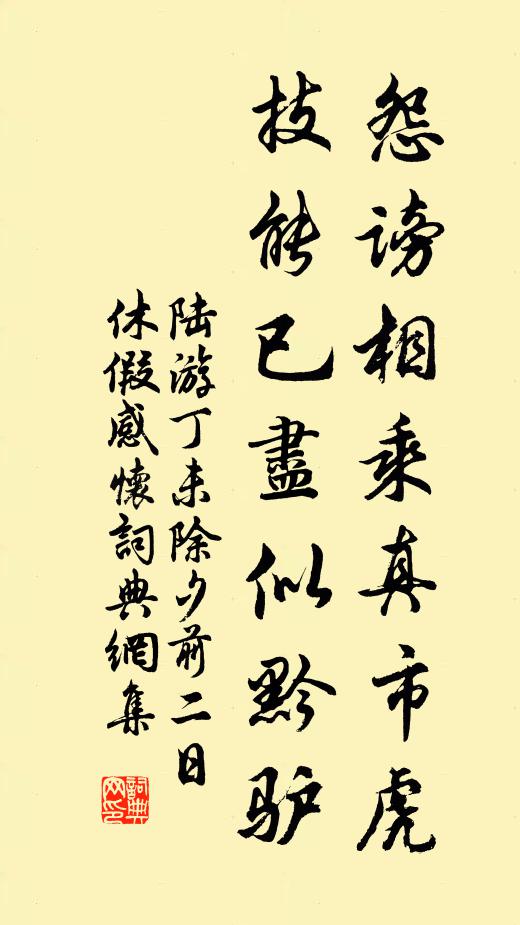 怨謗相乘真市虎
技能已盡似黔驴
陆游丁未除夕前二日
休假感懷詞典網集
詞典
网印